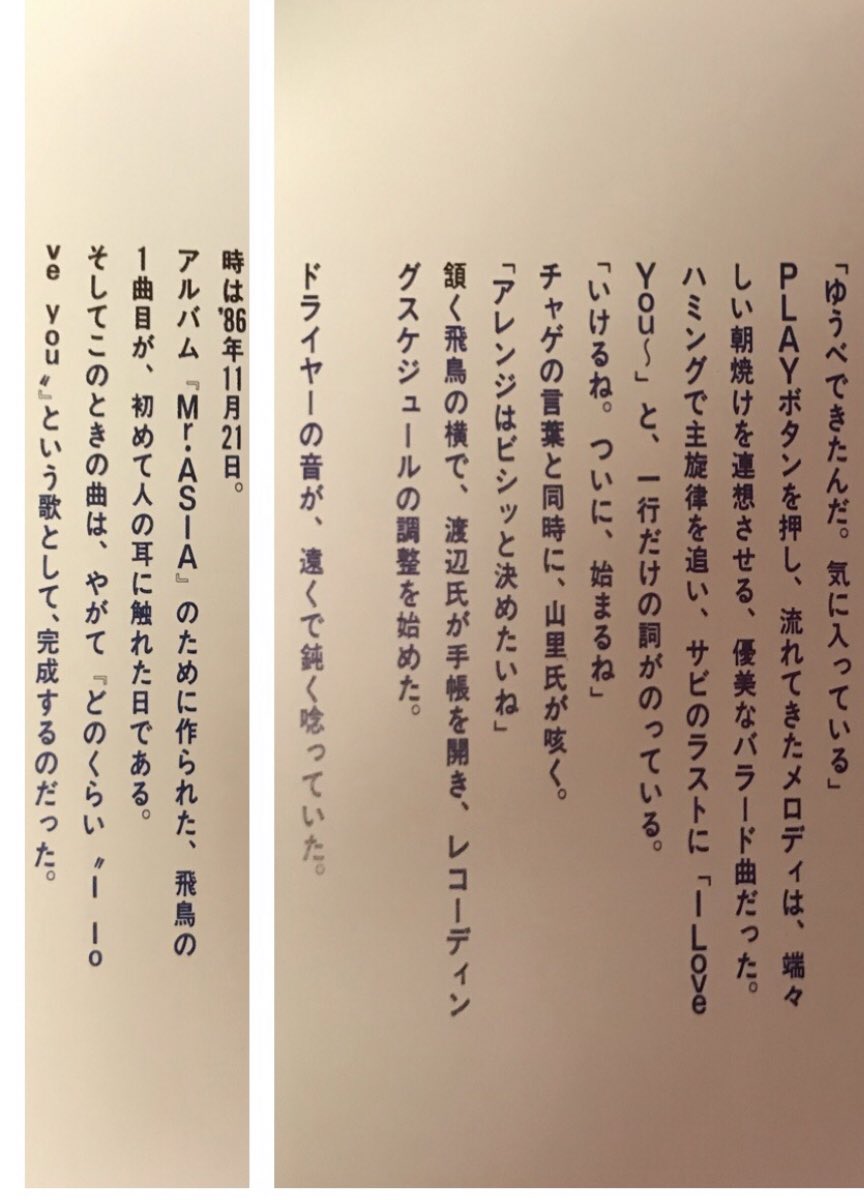 「ゆうべできたんだ。気に入っている」
PLAYボタンを押し、流れてきたメロディは、端々
しい朝焼けを連想させる、優美なバラード曲だった。
ハミングで主旋律を追い、サビのラストに「I Love
You〜」と、一行だけの詞がのっている。
「いけるね。ついに、始まるね」
チャゲの言葉と同時に、山里氏が呟く。
「アレンジはビシッと決めたいね」
頷く飛鳥の横で、渡辺氏が手帳を開き、レコーディン
グスケジュールの調整を始めた。
ドライヤーの音が、遠くで鈍く唸っていた。
時は'86年11月21日。
アルバム『Mr.ASIA』のために作られた、飛鳥の
1曲目が、初めて人の耳に触れた日である。
そしてこのときの曲は、やがて『どのくらい〝I lo
ve you〟』という歌として、完成するのだった。